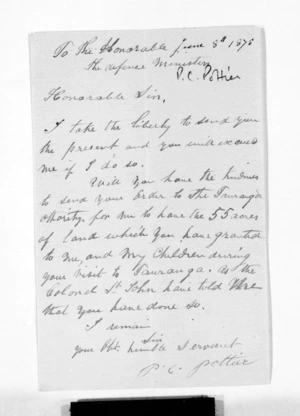 To the Honorable June 8th 1870
the defence Minister
P. C. Pottier
Honorable Sir,
I take the liberty to send you
the present and you will excuse
me if I do so.
Will you have the kindness
to send your Order to the Tauranga
athority for me to have the 55 acres
of land which You have granted
to me, and my Children during
your visit to Tauranga. As the
Colonel St John have told Me
that you have done so.
I remain
Sir
your Obt. humble Servant
P. C. Pottier